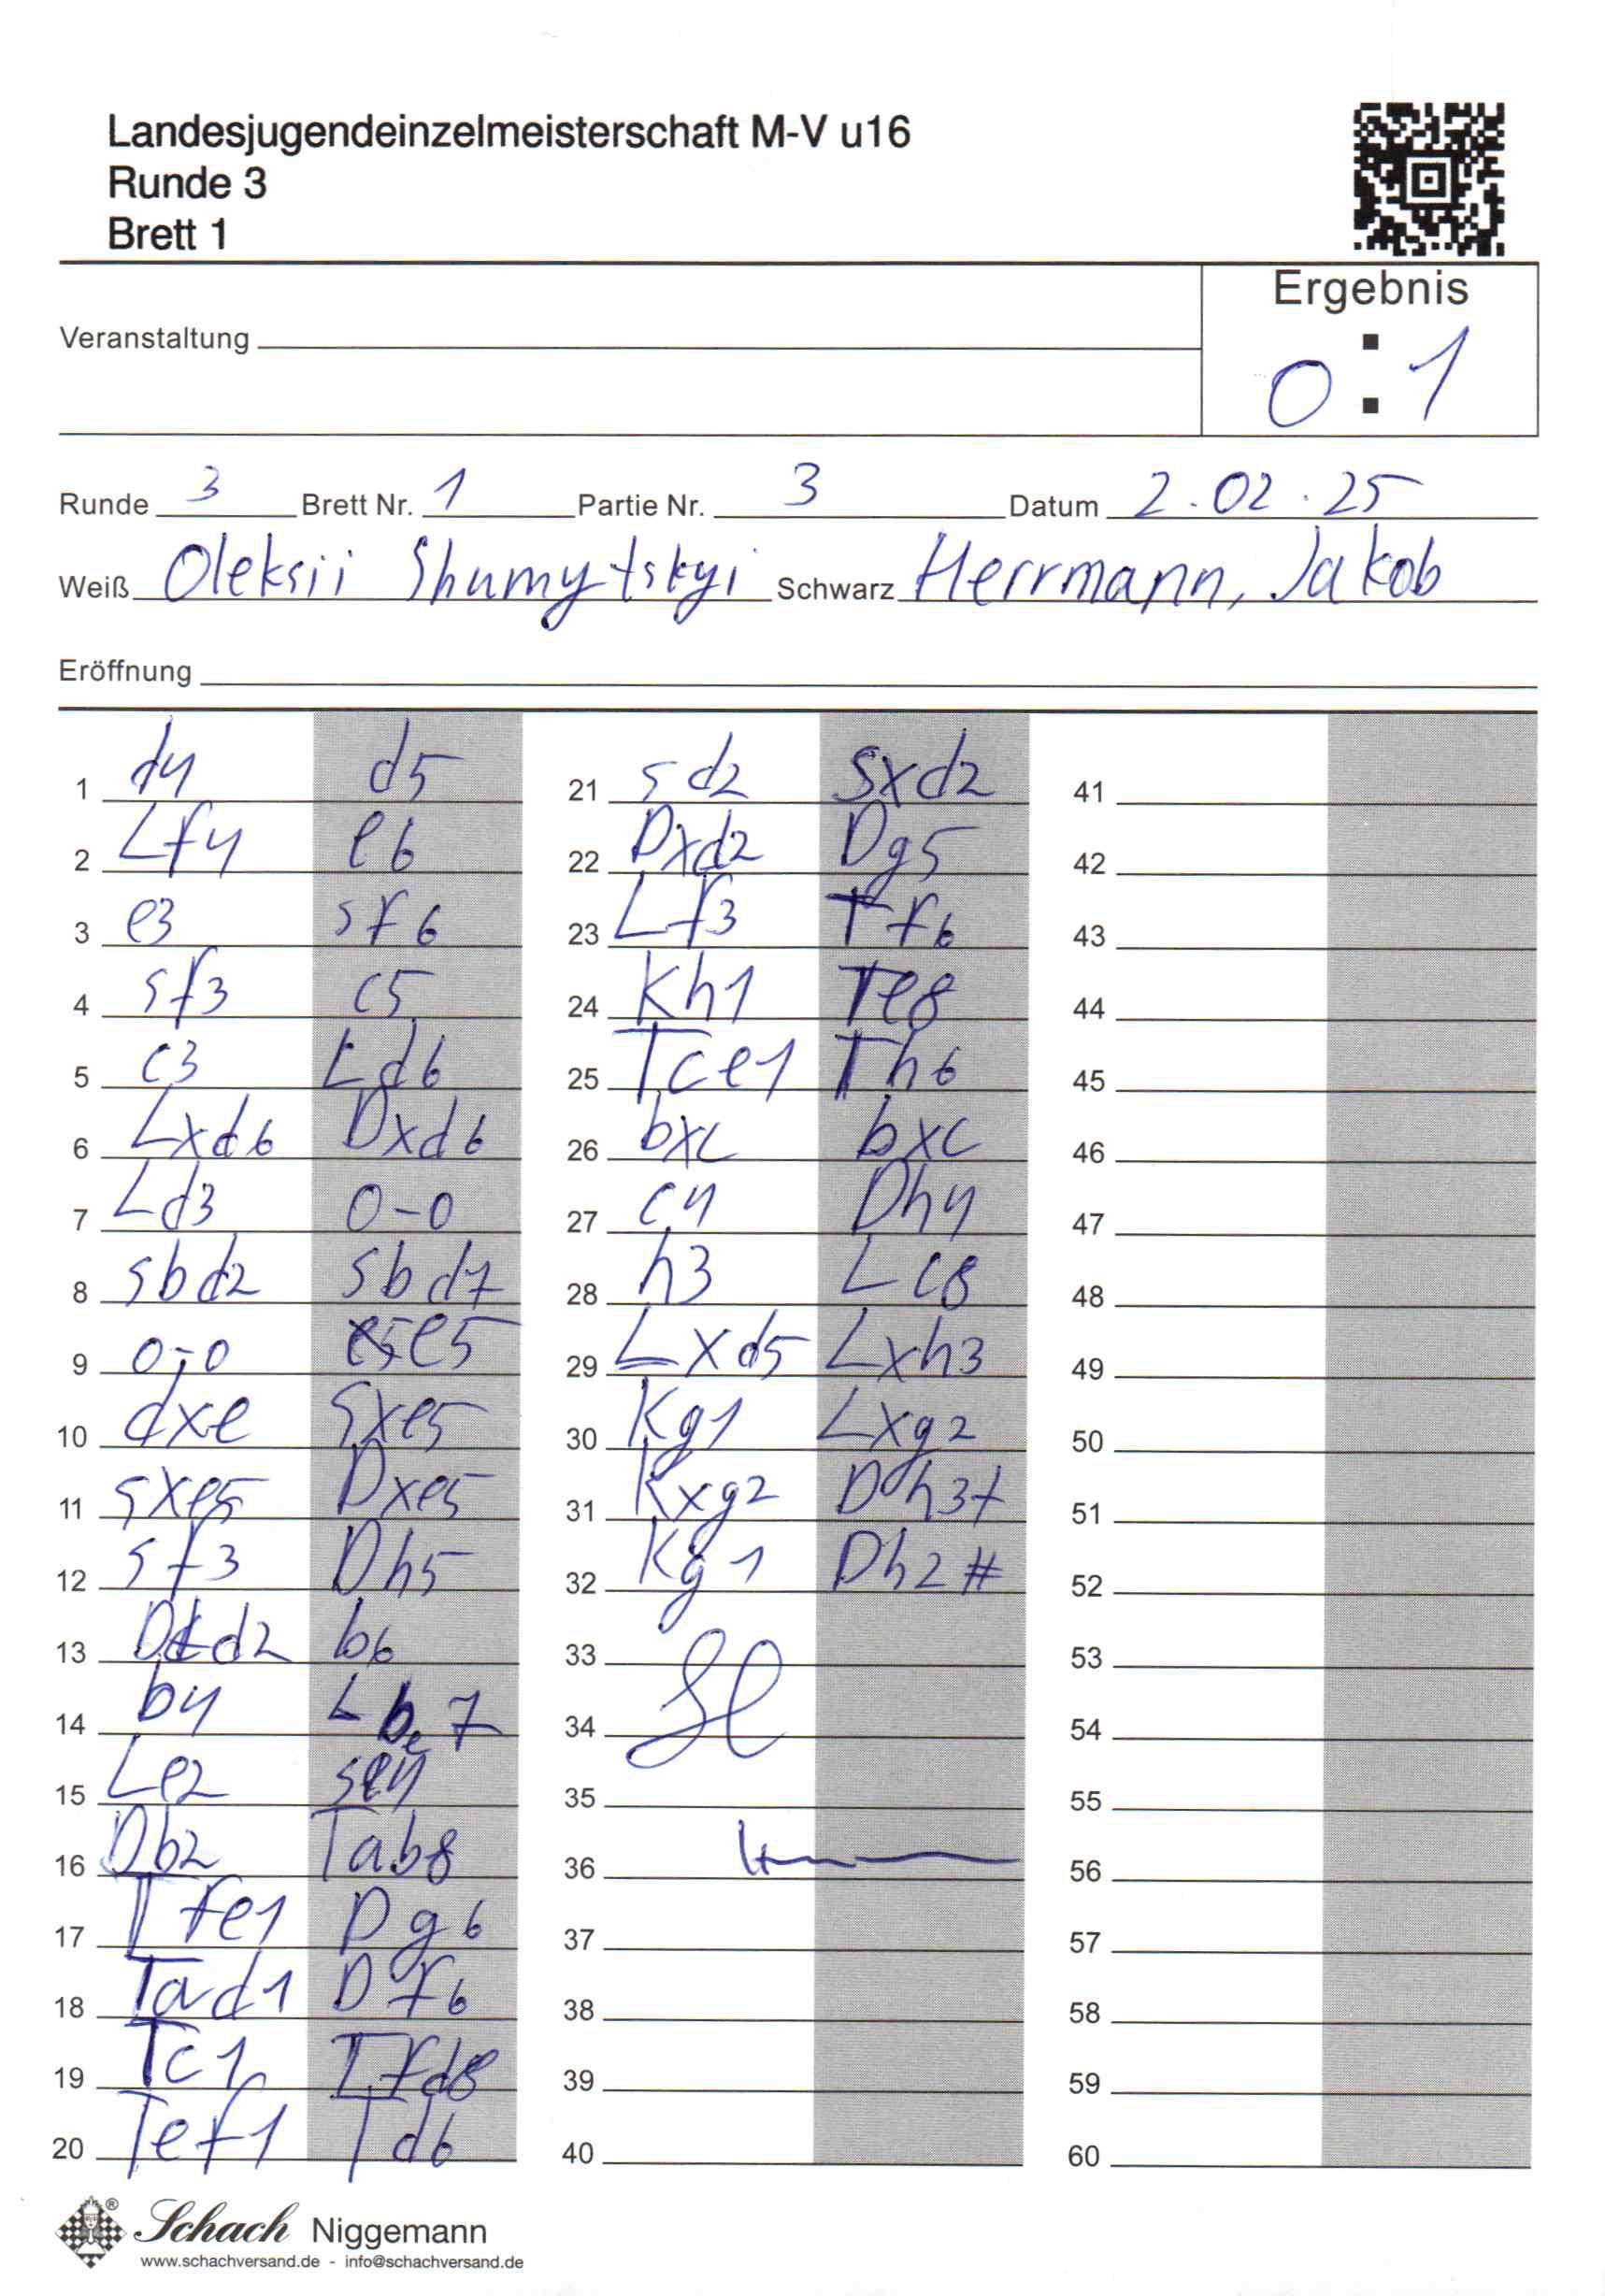 Landesjugendeinzelmeisterschaft M-V u16
Runde 3
Brett 1
Ergebnis
Veranstaltung
0 : 1
Runde 3 Brett Nr. 1 Partie Nr. 3 Datum 2.02.25
Weiß Oleksii Shumytskyi Schwarz Herrmann, Jakob
Eröffnung
1 d4 d5
2 Lf4 e6
3 e3 sf6
4 sf3 c5
5 c3 Ld6
6 Lxd6 Dxd6
7 Ld3 0-0
8 sbd2 sbd7
9 0-0 e5
10 dxe sxe5
11 sxe5 Dxe5
12 sf3 Dh5
13 Dd2 b6
14 b4 Lb7
15 Le2 se4
16 Db2 Tab8
17 Tfe1 Dg6
18 Tad1 Df6
19 Tc1 Tfd8
20 Tef1 Td6
21 sd2 sxd2
22 Dxd2 Dg5
23 Lf3 Tf6
24 Kh1 Te8
25 Tce1 Th6
26 bxc bxc
27 c4 Dh4
28 h3 Lc8
29 Lxd5 Lxh3
30 Kg1 Lxg2
31 Kxg2 Dh3+
32 Kg1 Dh2#
33
34
35
36
37
38
39
40
41
42
43
44
45
46
47
48
49
50
51
52
53
54
55
56
57
58
59
60
Schach Niggemann
www.schachversand.de - info@schachversand.de